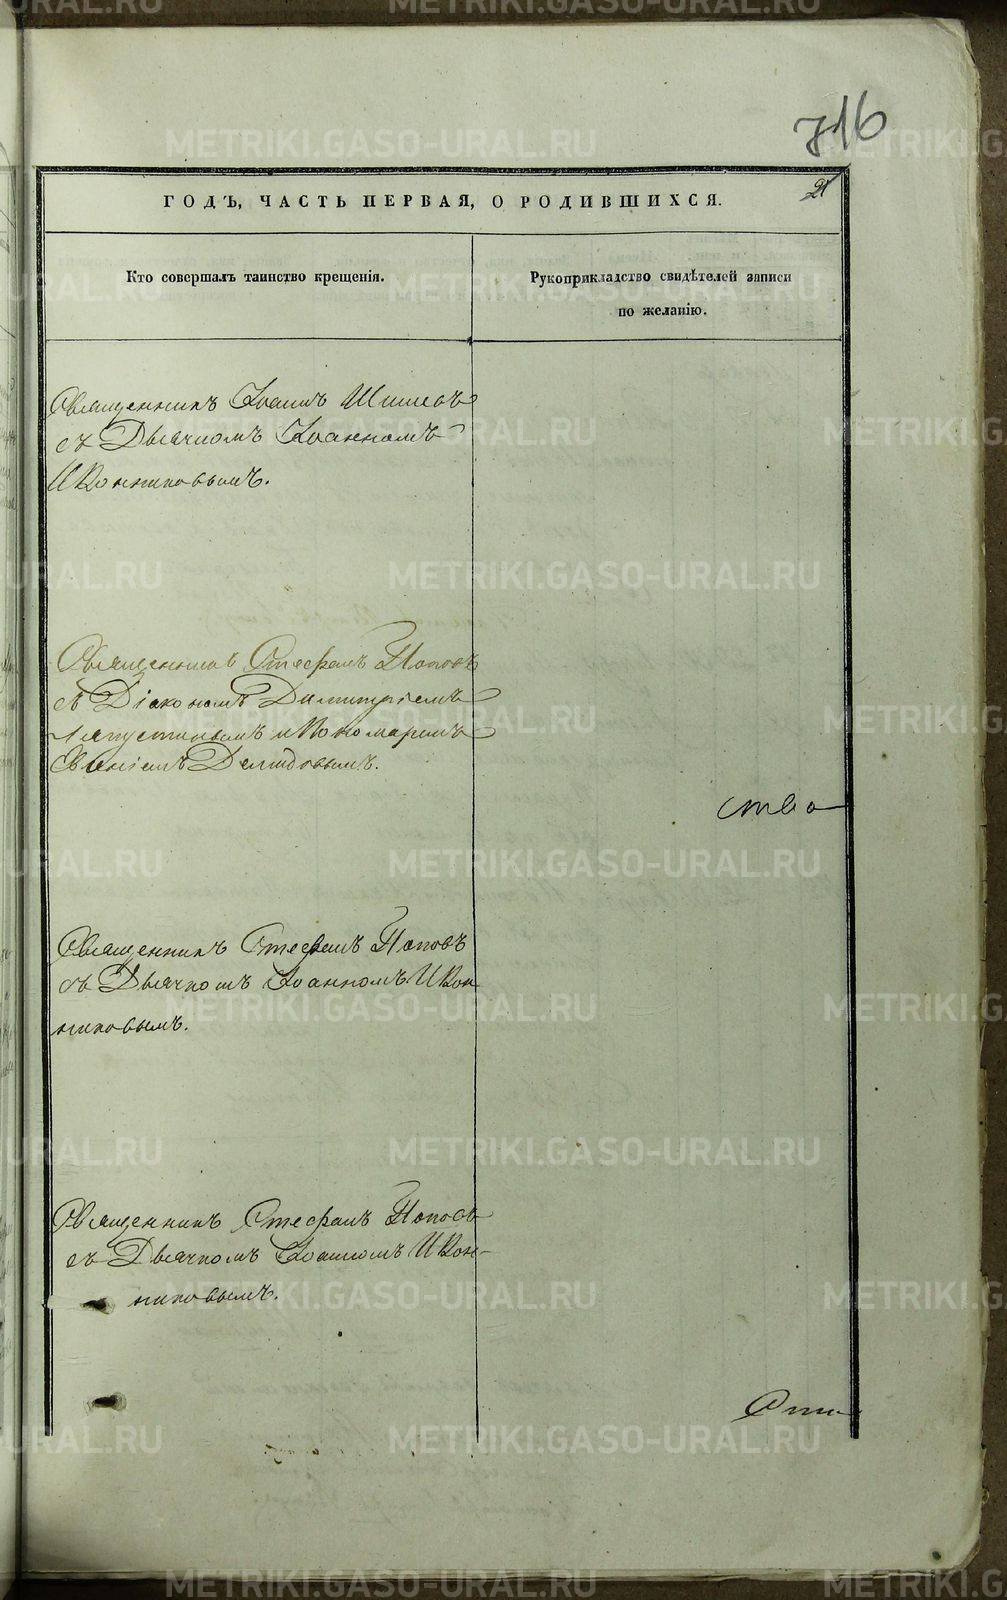 716
21
ГОДЪ, ЧАСТЬ ПЕРВАЯ, О РОДИВШИХСЯ.
Кто совершалъ таинство крещенія.
Рукоприкладство свидѣтелей записи
по желанію.
Священникъ Іоаннъ
съ Дьячкомъ Іоанномъ
Иконниковымъ.
Священникъ Стефанъ Поповъ
съ Діакономъ Димитріемъ
Лапустинымъ и Пономаремъ
Демидовымъ.
ства
Священникъ Стефанъ Поповъ
съ Дьячкомъ Іоанномъ Икон
никовымъ.
Священникъ Стефанъ Поповъ
съ Дьячкомъ Іоанномъ Икон-
никовымъ.
METRIKI.GASO-URAL.RU